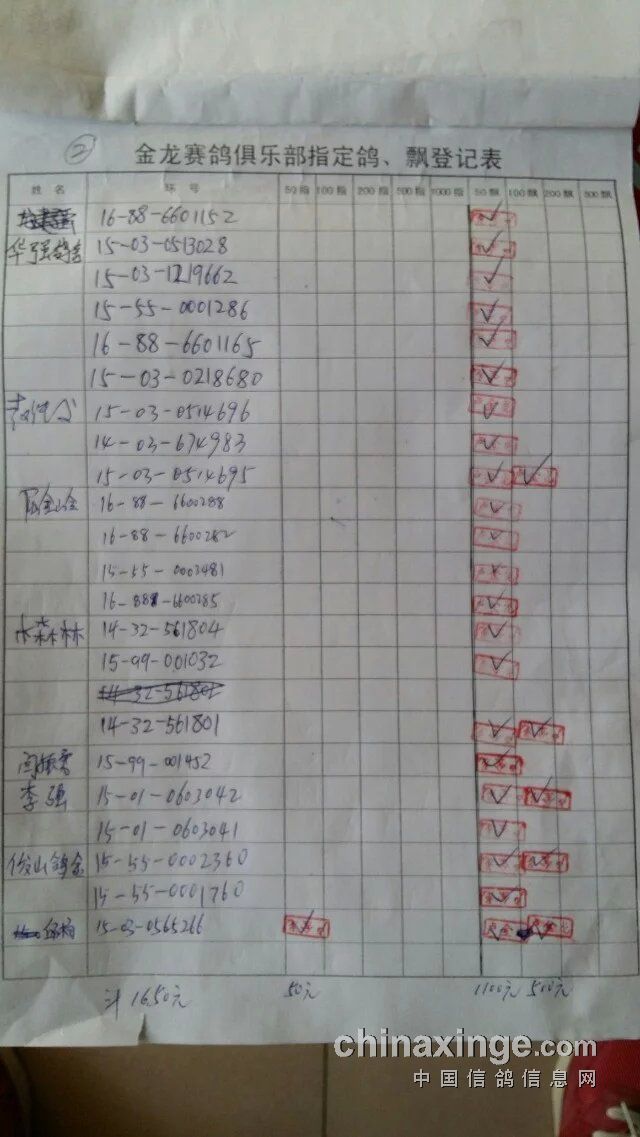 ②
金龙赛鸽俱乐部指定鸽、飘登记表
姓名 环号 50指 100指 200指 500指 1000指 50飘 100飘 200飘 500飘
16-88-6601152
华强鸽舍 15-03-0513028
15-03-1219662
15-55-0001286
16-88-6601165
15-03-0218680
15-03-0514696
14-03-674983
15-03-0514695
16-88-6600288
16-88-6600282
15-55-0002481
16-88-6600285
木森林 14-32-561804
15-99-001032
14-32-561801
14-32-561801
15-99-001452
李强 15-01-0603042
15-01-0603041
俊山鸽舍 15-55-0002360
15-55-0001760
15-03-0565266
计1650元 50元 1100元 500元
chinaxinge.com
中国信鸽信息网